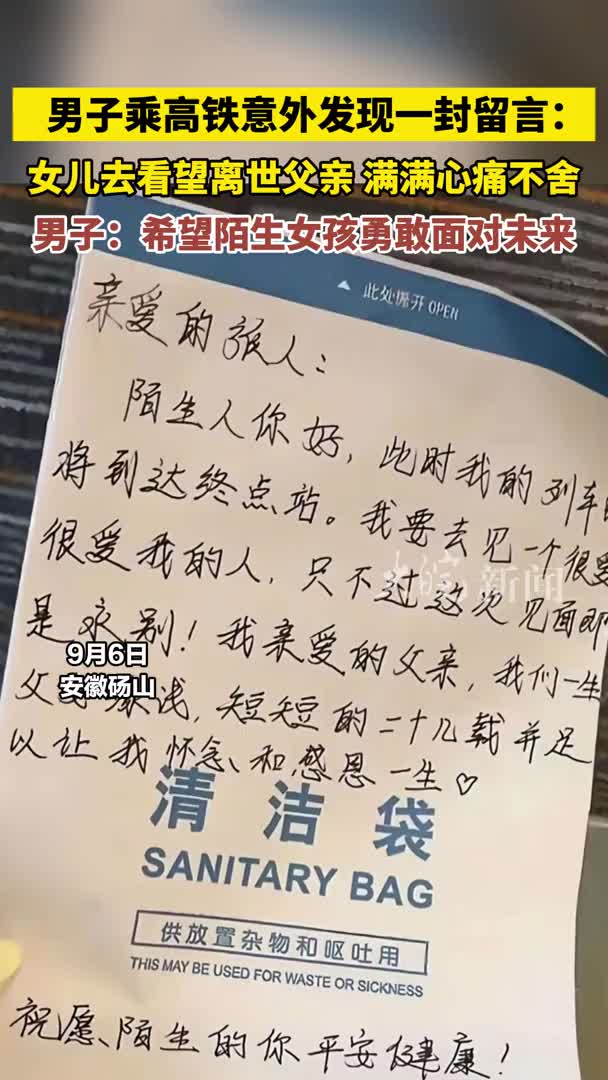 男子乘高铁意外发现一封留言：
女儿去看望离世父亲 满满心痛不舍
男子：希望陌生女孩勇敢面对未来
此处撕开 OPEN
亲爱的旅人：
陌生人你好，此时我的列车
将到达终点站。我要去见一个很爱
很爱我的人，只不过这次见面即
是永别！我亲爱的父亲，我们一生
父 浅，短短的二十几载并足
以让我怀念、和感恩一生♡
大皖新闻
9月6日
安徽砀山
清洁袋
SANITARY BAG
供放置杂物和呕吐用
THIS MAY BE USED FOR WASTE OR SICKNESS
祝愿、陌生的你平安健康！